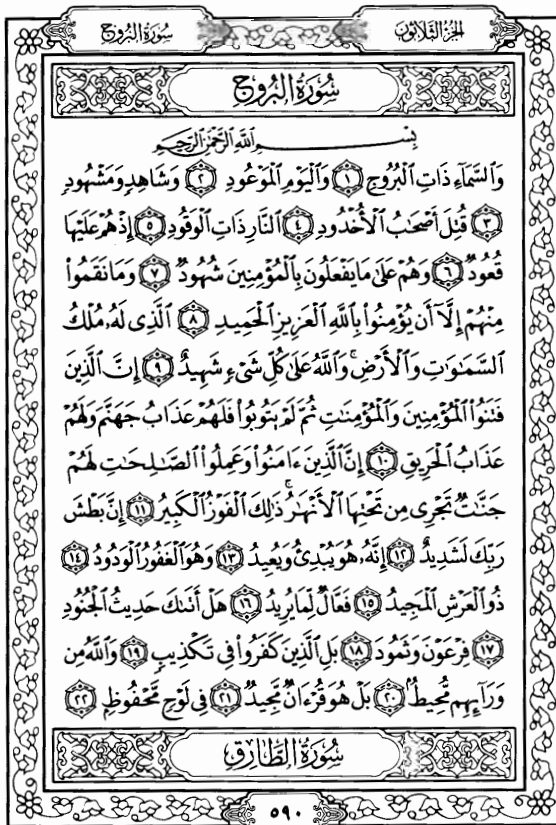 سُورَةُ البُرُوجِ
الجُزْءُ الثَّلَاثُونَ
سُورَةُ البُرُوجِ
بِسْمِ ٱللَّهِ ٱلرَّحْمَٰنِ ٱلرَّحِيمِ
وَٱلسَّمَآءِ ذَاتِ ٱلْبُرُوجِ ١ وَٱلْيَوْمِ ٱلْمَوْعُودِ ٢ وَشَاهِدٍ وَمَشْهُودٍ
٣ قُتِلَ أَصْحَٰبُ ٱلْأُخْدُودِ ٤ ٱلنَّارِ ذَاتِ ٱلْوَقُودِ ٥ إِذْ هُمْ عَلَيْهَا
قُعُودٌ ٦ وَهُمْ عَلَىٰ مَا يَفْعَلُونَ بِٱلْمُؤْمِنِينَ شُهُودٌ ٧ وَمَا نَقَمُوا۟
مِنْهُمْ إِلَّآ أَن يُؤْمِنُوا۟ بِٱللَّهِ ٱلْعَزِيزِ ٱلْحَمِيدِ ٨ ٱلَّذِى لَهُۥ مُلْكُ
ٱلسَّمَٰوَٰتِ وَٱلْأَرْضِ ۚ وَٱللَّهُ عَلَىٰ كُلِّ شَىْءٍ شَهِيدٌ ٩ إِنَّ ٱلَّذِينَ
فَتَنُوا۟ ٱلْمُؤْمِنِينَ وَٱلْمُؤْمِنَٰتِ ثُمَّ لَمْ يَتُوبُوا۟ فَلَهُمْ عَذَابُ جَهَنَّمَ وَلَهُمْ
عَذَابُ ٱلْحَرِيقِ ١٠ إِنَّ ٱلَّذِينَ ءَامَنُوا۟ وَعَمِلُوا۟ ٱلصَّٰلِحَٰتِ لَهُمْ
جَنَّٰتٌ تَجْرِى مِن تَحْتِهَا ٱلْأَنْهَٰرُ ۚ ذَٰلِكَ ٱلْفَوْزُ ٱلْكَبِيرُ ١١ إِنَّ بَطْشَ
رَبِّكَ لَشَدِيدٌ ١٢ إِنَّهُۥ هُوَ يُبْدِئُ وَيُعِيدُ ١٣ وَهُوَ ٱلْغَفُورُ ٱلْوَدُودُ ١٤
ذُو ٱلْعَرْشِ ٱلْمَجِيدُ ١٥ فَعَّالٌ لِّمَا يُرِيدُ ١٦ هَلْ أَتَىٰكَ حَدِيثُ ٱلْجُنُودِ
١٧ فِرْعَوْنَ وَثَمُودَ ١٨ بَلِ ٱلَّذِينَ كَفَرُوا۟ فِى تَكْذِيبٍ ١٩ وَٱللَّهُ مِن
وَرَآئِهِم مُّحِيطٌۢ ٢٠ بَلْ هُوَ قُرْءَانٌ مَّجِيدٌ ٢١ فِى لَوْحٍ مَّحْفُوظٍۭ ٢٢
سُورَةُ الطَّارِقِ
٥٩٠